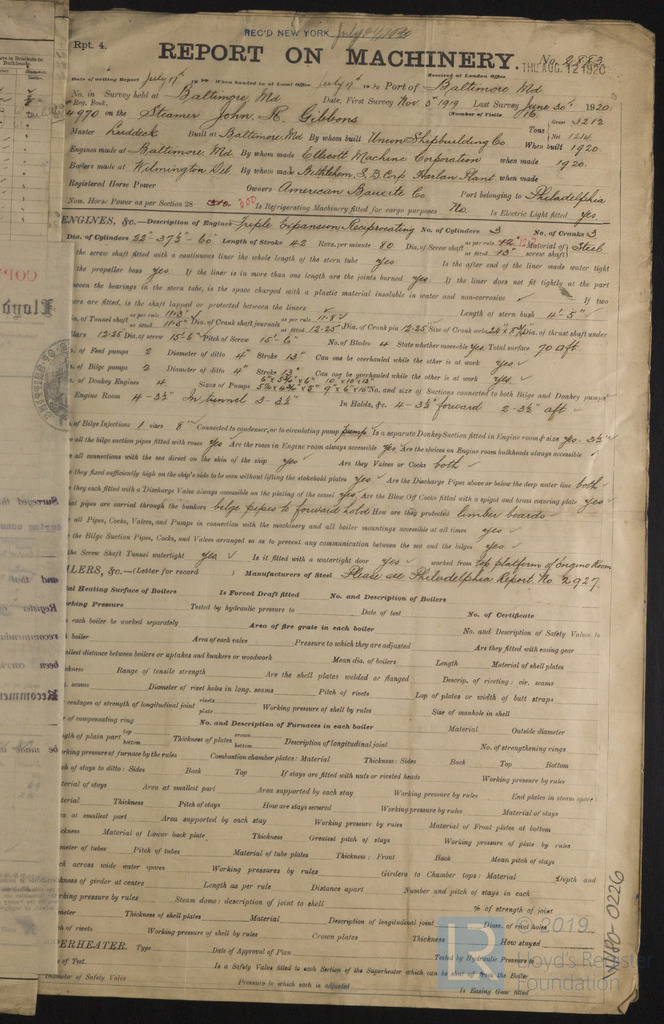 REC'D NEW YORK July 24 1920
Rpt. 4.
REPORT ON MACHINERY.
No. 2883
THU. AUG. 12 1920
Date of writing Report July 17th 1920 When handed in at Local Office July 17th 1920 Port of Baltimore Md
Received at London Office
No. in Survey held at Baltimore, Md Date, First Survey Nov 5th 1919 Last Survey June 30th 1920
Reg. Book. (Number of Visits 16
4970 on the Steamer John R. Gibbons Tons Gross 3212 Net
Master Luddeck Built at Baltimore, Md By whom built Union Shipbuilding Co. When built 1920
Engines made at Baltimore, Md By whom made Ellicott Machine Corporation when made 1920
Boilers made at Wilmington Del By whom made Bethlehem S.B. Corp Harlan Plant when made
Registered Horse Power Owners American Bauxite Co Port belonging to Philadelphia
Nom. Horse Power as per Section 28 300 Is Refrigerating Machinery fitted for cargo purposes No. Is Electric Light fitted yes
ENGINES, &c.—Description of Engines Triple Expansion Reciprocating No. of Cylinders 3 No. of Cranks 3
Dia. of Cylinders 22"-37½"-60" Length of Stroke 42 Revs. per minute 80 Dia. of Screw shaft as per rule as fitted 13" Material of screw shaft Steel
the screw shaft fitted with a continuous liner the whole length of the stern tube yes Is the after end of the liner made water tight
the propeller boss yes If the liner is in more than one length are the joints burned yes If the liner does not fit tightly at the part
between the bearings in the stern tube, is the space charged with a plastic material insoluble in water and non-corrosive If two
ers are fitted, is the shaft lapped or protected between the liners Length of stern bush 4'-5"
of Tunnel shaft as per rule 11.3" as fitted 11.5" Dia. of Crank shaft journals as per rule 11.87 as fitted 12.25 Dia. of Crank pin 12.25 Size of Crank webs Dia. of thrust shaft under
lars 12.25 Dia. of screw 15'-6" Pitch of Screw 15'-6" No. of Blades 4 State whether moveable yes Total surface 70 ft
of Feed pumps 2 Diameter of ditto 4" Stroke 13" Can one be overhauled while the other is at work yes
of Bilge pumps 2 Diameter of ditto 4" Stroke 13" Can one be overhauled while the other is at work yes
of Donkey Engines 4 Sizes of Pumps No. and size of Suctions connected to both Bilge and Donkey pumps
Engine Room 4-3½" In tunnel 2-3½" In Holds, &c. 4-3½" forward 2-3½" aft
of Bilge Injections 1 sizes 8" Connected to condenser, or to circulating pump pump Is a separate Donkey Suction fitted in Engine room & size yes. 3½"
e all the bilge suction pipes fitted with roses yes Are the roses in Engine room always accessible yes Are the sluices on Engine room bulkheads always accessible
e all connections with the sea direct on the skin of the ship yes Are they Valves or Cocks both
e they fixed sufficiently high on the ship's side to be seen without lifting the stokehold plates yes Are the Discharge Pipes above or below the deep water line both
e they each fitted with a Discharge Valve always accessible on the plating of the vessel yes Are the Blow Off Cocks fitted with a spigot and brass covering plate yes
at pipes are carried through the bunkers bilge pipes to forward holds How are they protected limber boards
e all Pipes, Cocks, Valves, and Pumps in connection with the machinery and all boiler mountings accessible at all times yes
e the Bilge Suction Pipes, Cocks, and Valves arranged so as to prevent any communication between the sea and the bilges yes
the Screw Shaft Tunnel watertight yes Is it fitted with a watertight door yes worked from top platform of Engine Room
ILERS, &c.—(Letter for record ) Manufacturers of Steel Please see Philadelphia Report No. 2927.
tal Heating Surface of Boilers Is Forced Draft fitted No. and Description of Boilers
orking Pressure Tested by hydraulic pressure to Date of test No. of Certificate
each boiler be worked separately Area of fire grate in each boiler No. and Description of Safety Valves to
boiler Area of each valve Pressure to which they are adjusted Are they fitted with easing gear
allest distance between boilers or uptakes and bunkers or woodwork Mean dia. of boilers Length Material of shell plates
ickness Range of tensile strength Are the shell plates welded or flanged Descrip. of riveting: cir. seams
. seams Diameter of rivet holes in long. seams Pitch of rivets Lap of plates or width of butt straps
rcentages of strength of longitudinal joint rivets plate Working pressure of shell by rules Size of manhole in shell
of compensating ring No. and Description of Furnaces in each boiler Material Outside diameter
gth of plain part top bottom Thickness of plates crown bottom Description of longitudinal joint No. of strengthening rings
rking pressure of furnace by the rules Combustion chamber plates: Material Thickness: Sides Back Top Bottom
ch of stays to ditto: Sides Back Top If stays are fitted with nuts or riveted heads Working pressure by rules
of stays Area at smallest part Area supported by each stay Working pressure by rules End plates in steam space:
terial Thickness Pitch of stays How are stays secured Working pressure by rules Material of stays
ea at smallest part Area supported by each stay Working pressure by rules Material of Front plates at bottom
ckness Material of Lower back plate Thickness Greatest pitch of stays Working pressure of plate by rules
meter of tubes Pitch of tubes Material of tube plates Thickness: Front Back Mean pitch of stays
ch across wide water spaces Working pressures by rules Girders to Chamber tops: Material Depth and
ckness of girder at centre Length as per rule Distance apart Number and pitch of stays in each
rking pressure by rules Steam dome: description of joint to shell % of strength of joint
meter Thickness of shell plates Material Description of longitudinal joint Diam. of rivet holes
ch of rivets Working pressure of shell by rules Crown plates Thickness How stayed
PERHEATER. Type Date of Approval of Plan Tested by Hydraulic Pressure to
te of Test. Is a Safety Valve fitted to each Section of the Superheater which can be shut off from the Boiler
Diameter of Safety Valve Pressure to which each is adjusted Is Easing Gear fitted
© 2019
Lloyd's Register
Foundation
W40-0226